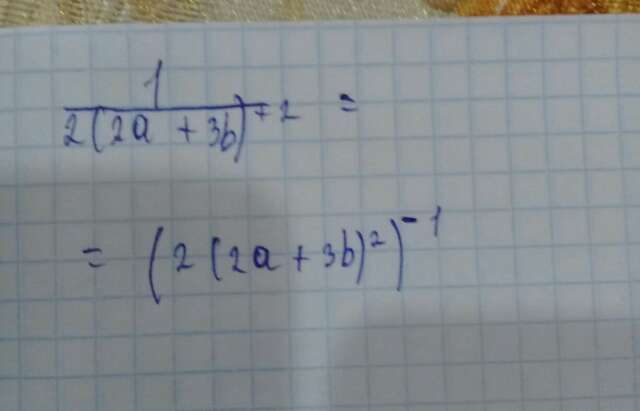 1
2(2a + 3b)⁺² =
= (2(2a + 3b)²)⁻¹